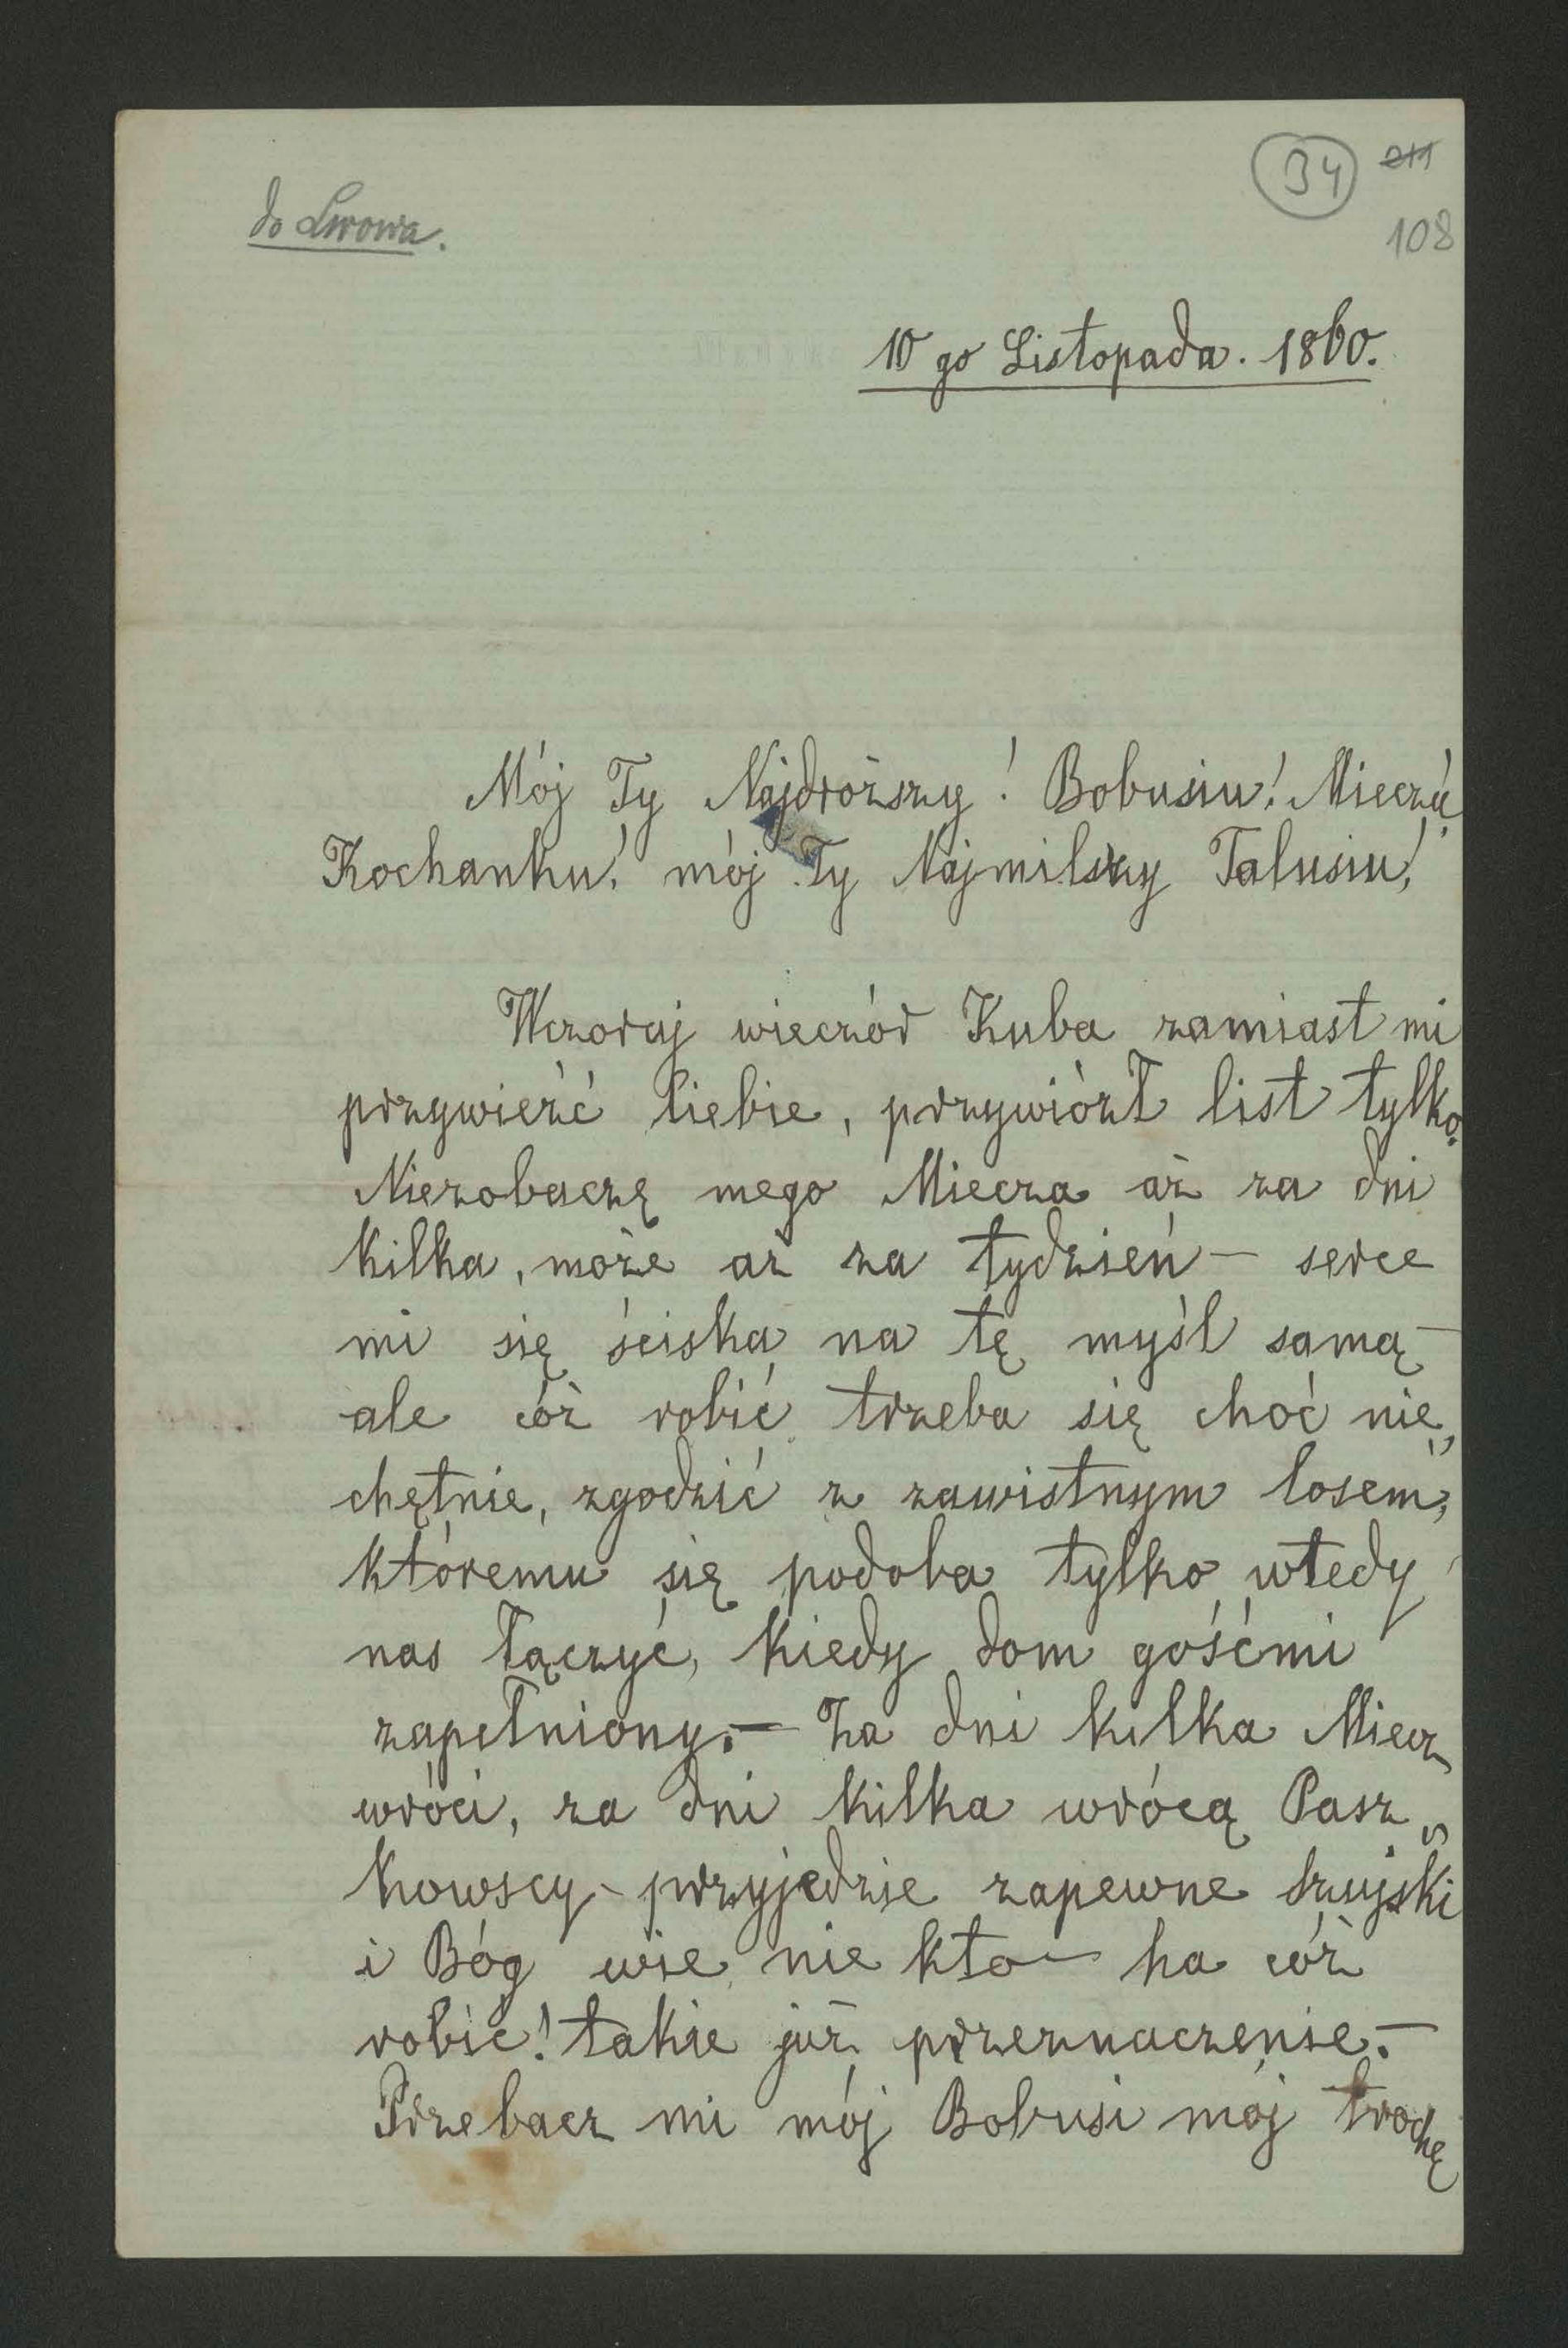 34 211
do Lwowa.
108
10 go Listopada. 1860.
Mój Ty Najdroższy! Bobusiu! Mieczú
Kochanku! mój Ty Najmilszy Talusiu!
Wczoraj wieczór Kuba zamiast mi
przywieźć Ciebie, przywiózł list tylko.
Niezobaczę mego Miecza aż za dni
kilka, może aż za tydzień — serce
mi się ściska na tę myśl samą —
ale cóż robić trzeba się choć nie„
chętnie, zgodzić z zawistnym losem,
któremu się podoba tylko wtedy
nas łączyć, kiedy dom gośćmi
zapełniony. — Za dni kilka Miecz
wróci, za dni kilka wrócą Pasz„
kowscy — przyjedzie zapewne Szujski
i Bóg wie nie kto — ha cóż
robić! takie już przeznaczenie. —
Przebacz mi mój Bobusi mój trochę